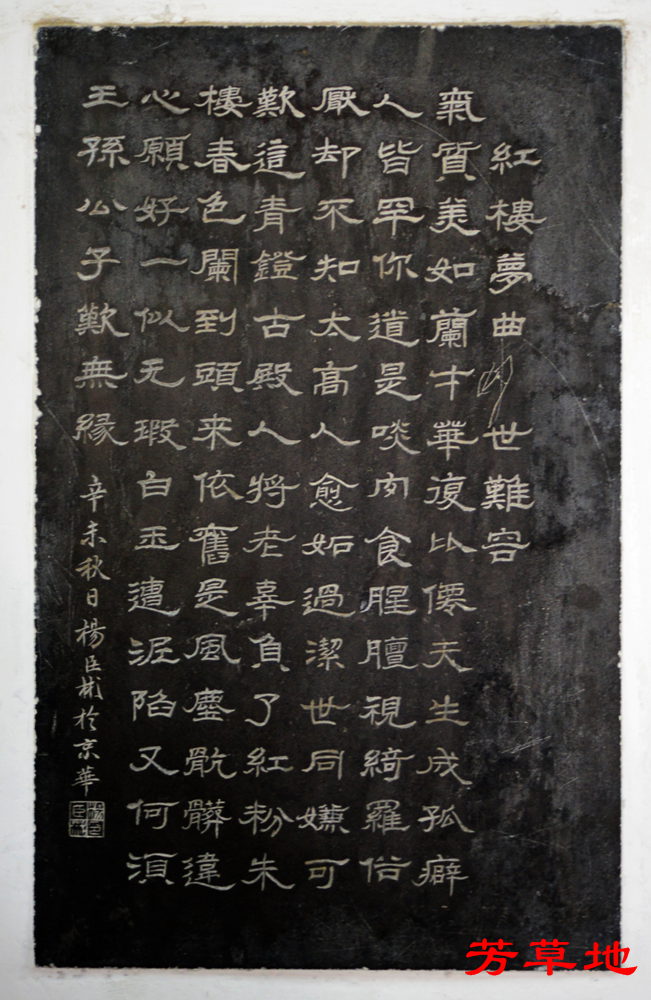 紅樓夢曲 世難容
氣質美如蘭才華復比僊天生成孤癖
人皆罕你道是啖肉食腥膻視綺羅俗
厭却不知太高人愈妬過潔世同嫌可
歎這青鐙古殿人將老辜負了紅粉朱
樓春色闌到頭来依舊是風塵骯髒違
心願好一似无瑕白玉遭泥陷又何須
王孫公子歎無緣 辛未秋日楊臣彬於京華
芳草地